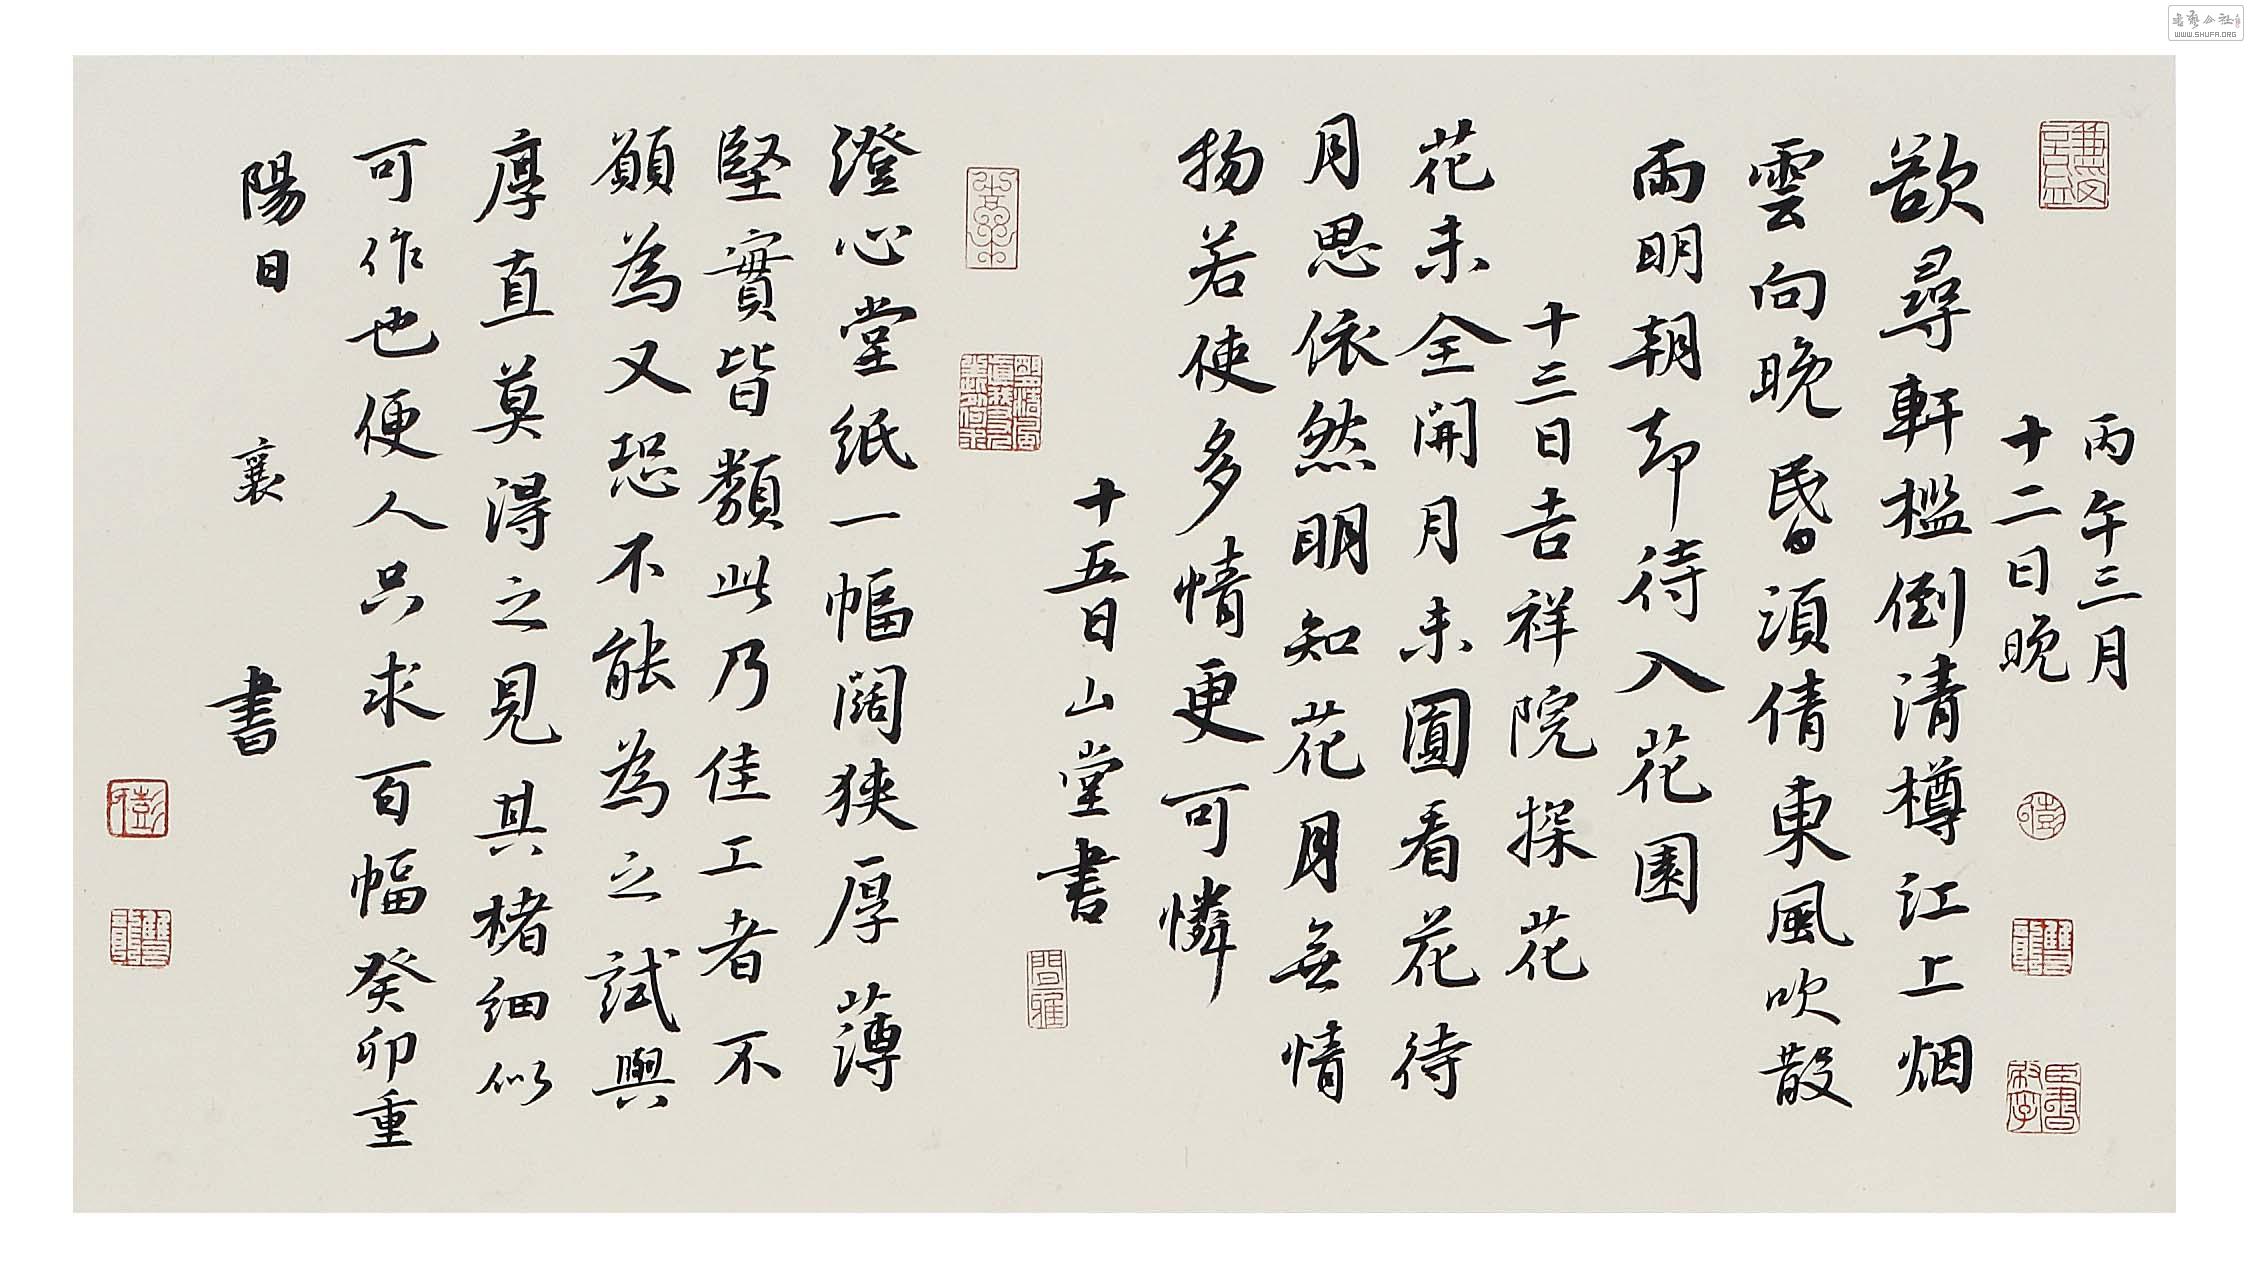 丙午三月
十二日晚
欲尋軒檻倒清樽江上烟
雲向晚昏須倩東風吹散
雨明朝却待入花園
十三日吉祥院探花
花未全開月未圓看花待
月思依然明知花月無情
物若使多情更可憐
十五日山堂書
澄心堂紙一幅闊狹厚薄
堅實皆類此乃佳工者不
願為又恐不能為之試與
厚直莫得之見其楮細似
可作也便人只求百幅癸卯重
陽日 襄 書
WWW.SHUFA.ORG